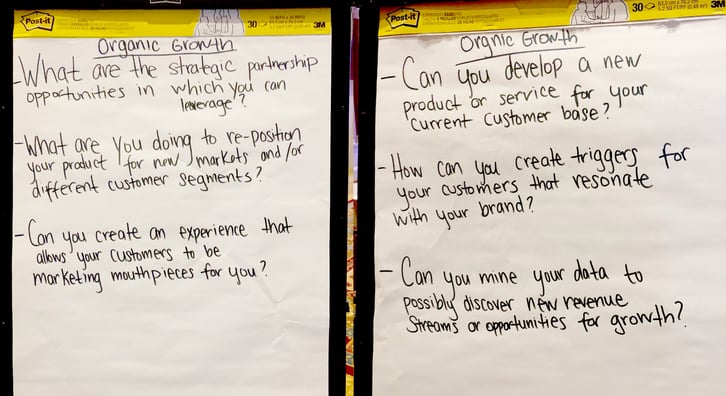 Post-it
30
3M
Organic Growth
- What are the strategic partnership
opportunities in which you can
leverage?
- What are you doing to re-position
your product for new markets and/or
different customer segments?
- Can you create an experience that
allows your customers to be
marketing mouthpieces for you?
Post-it
30
3M
Orgnic Growth
- Can you develop a new
product or service for your
current customer base?
- How can you create triggers for
your customers that resonate
with your brand?
- Can you mine your data to
possibly discover new revenue
streams or opportunities for growth?